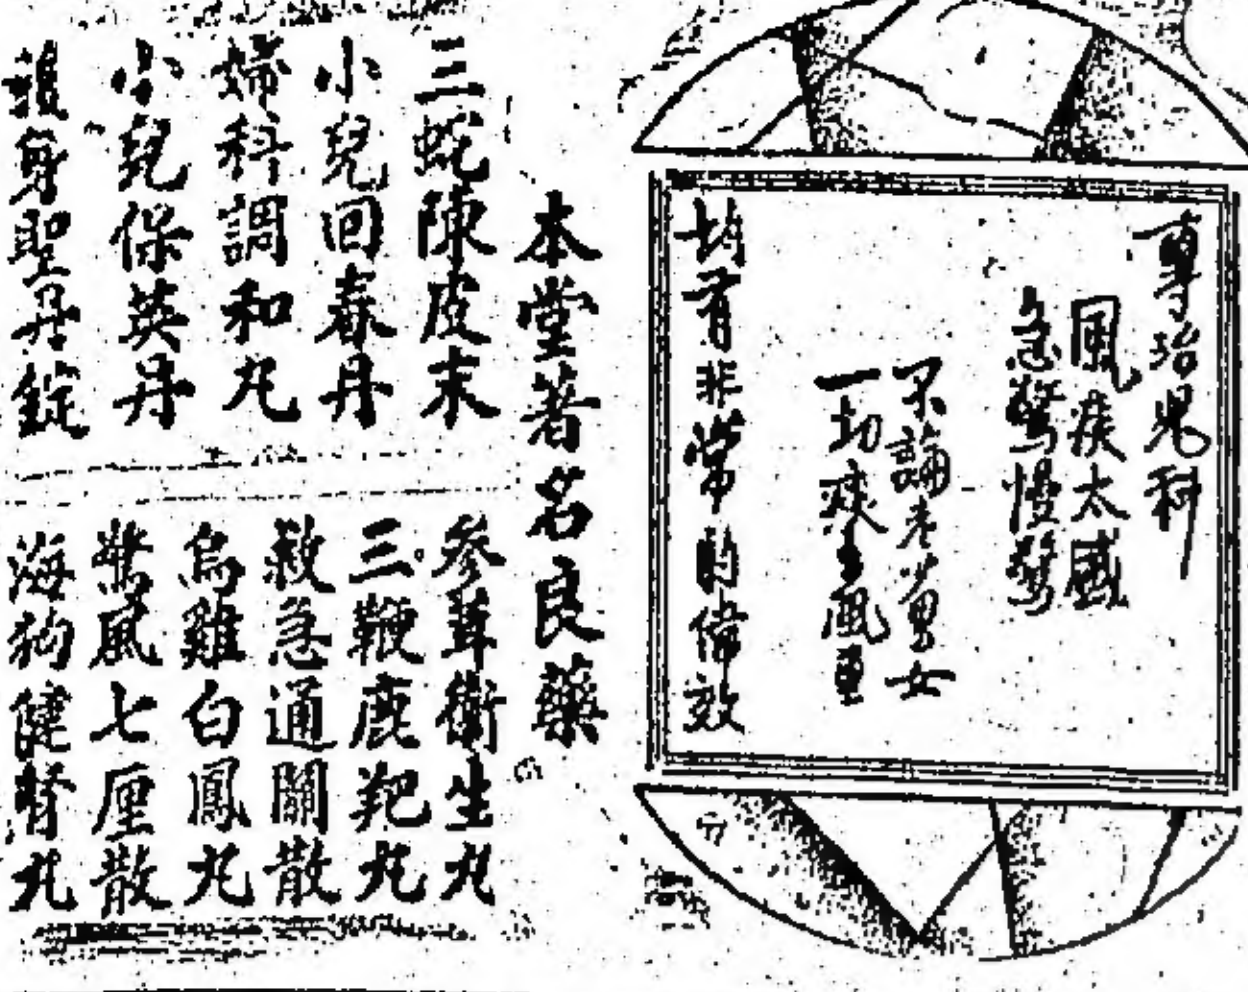 專治兒科
風痰太盛
急驚慢驚
不論老少男女
一切痰風
均有非常的偉效
本堂著名良藥
三蛇陳皮末
小兒回春丹
婦科調和丸
小兒保英丹
護身聖丹錠
參茸衛生丸
三鞭鹿羓丸
救急通關散
烏雞白鳳丸
鶯風七厘散
海狗健腎丸